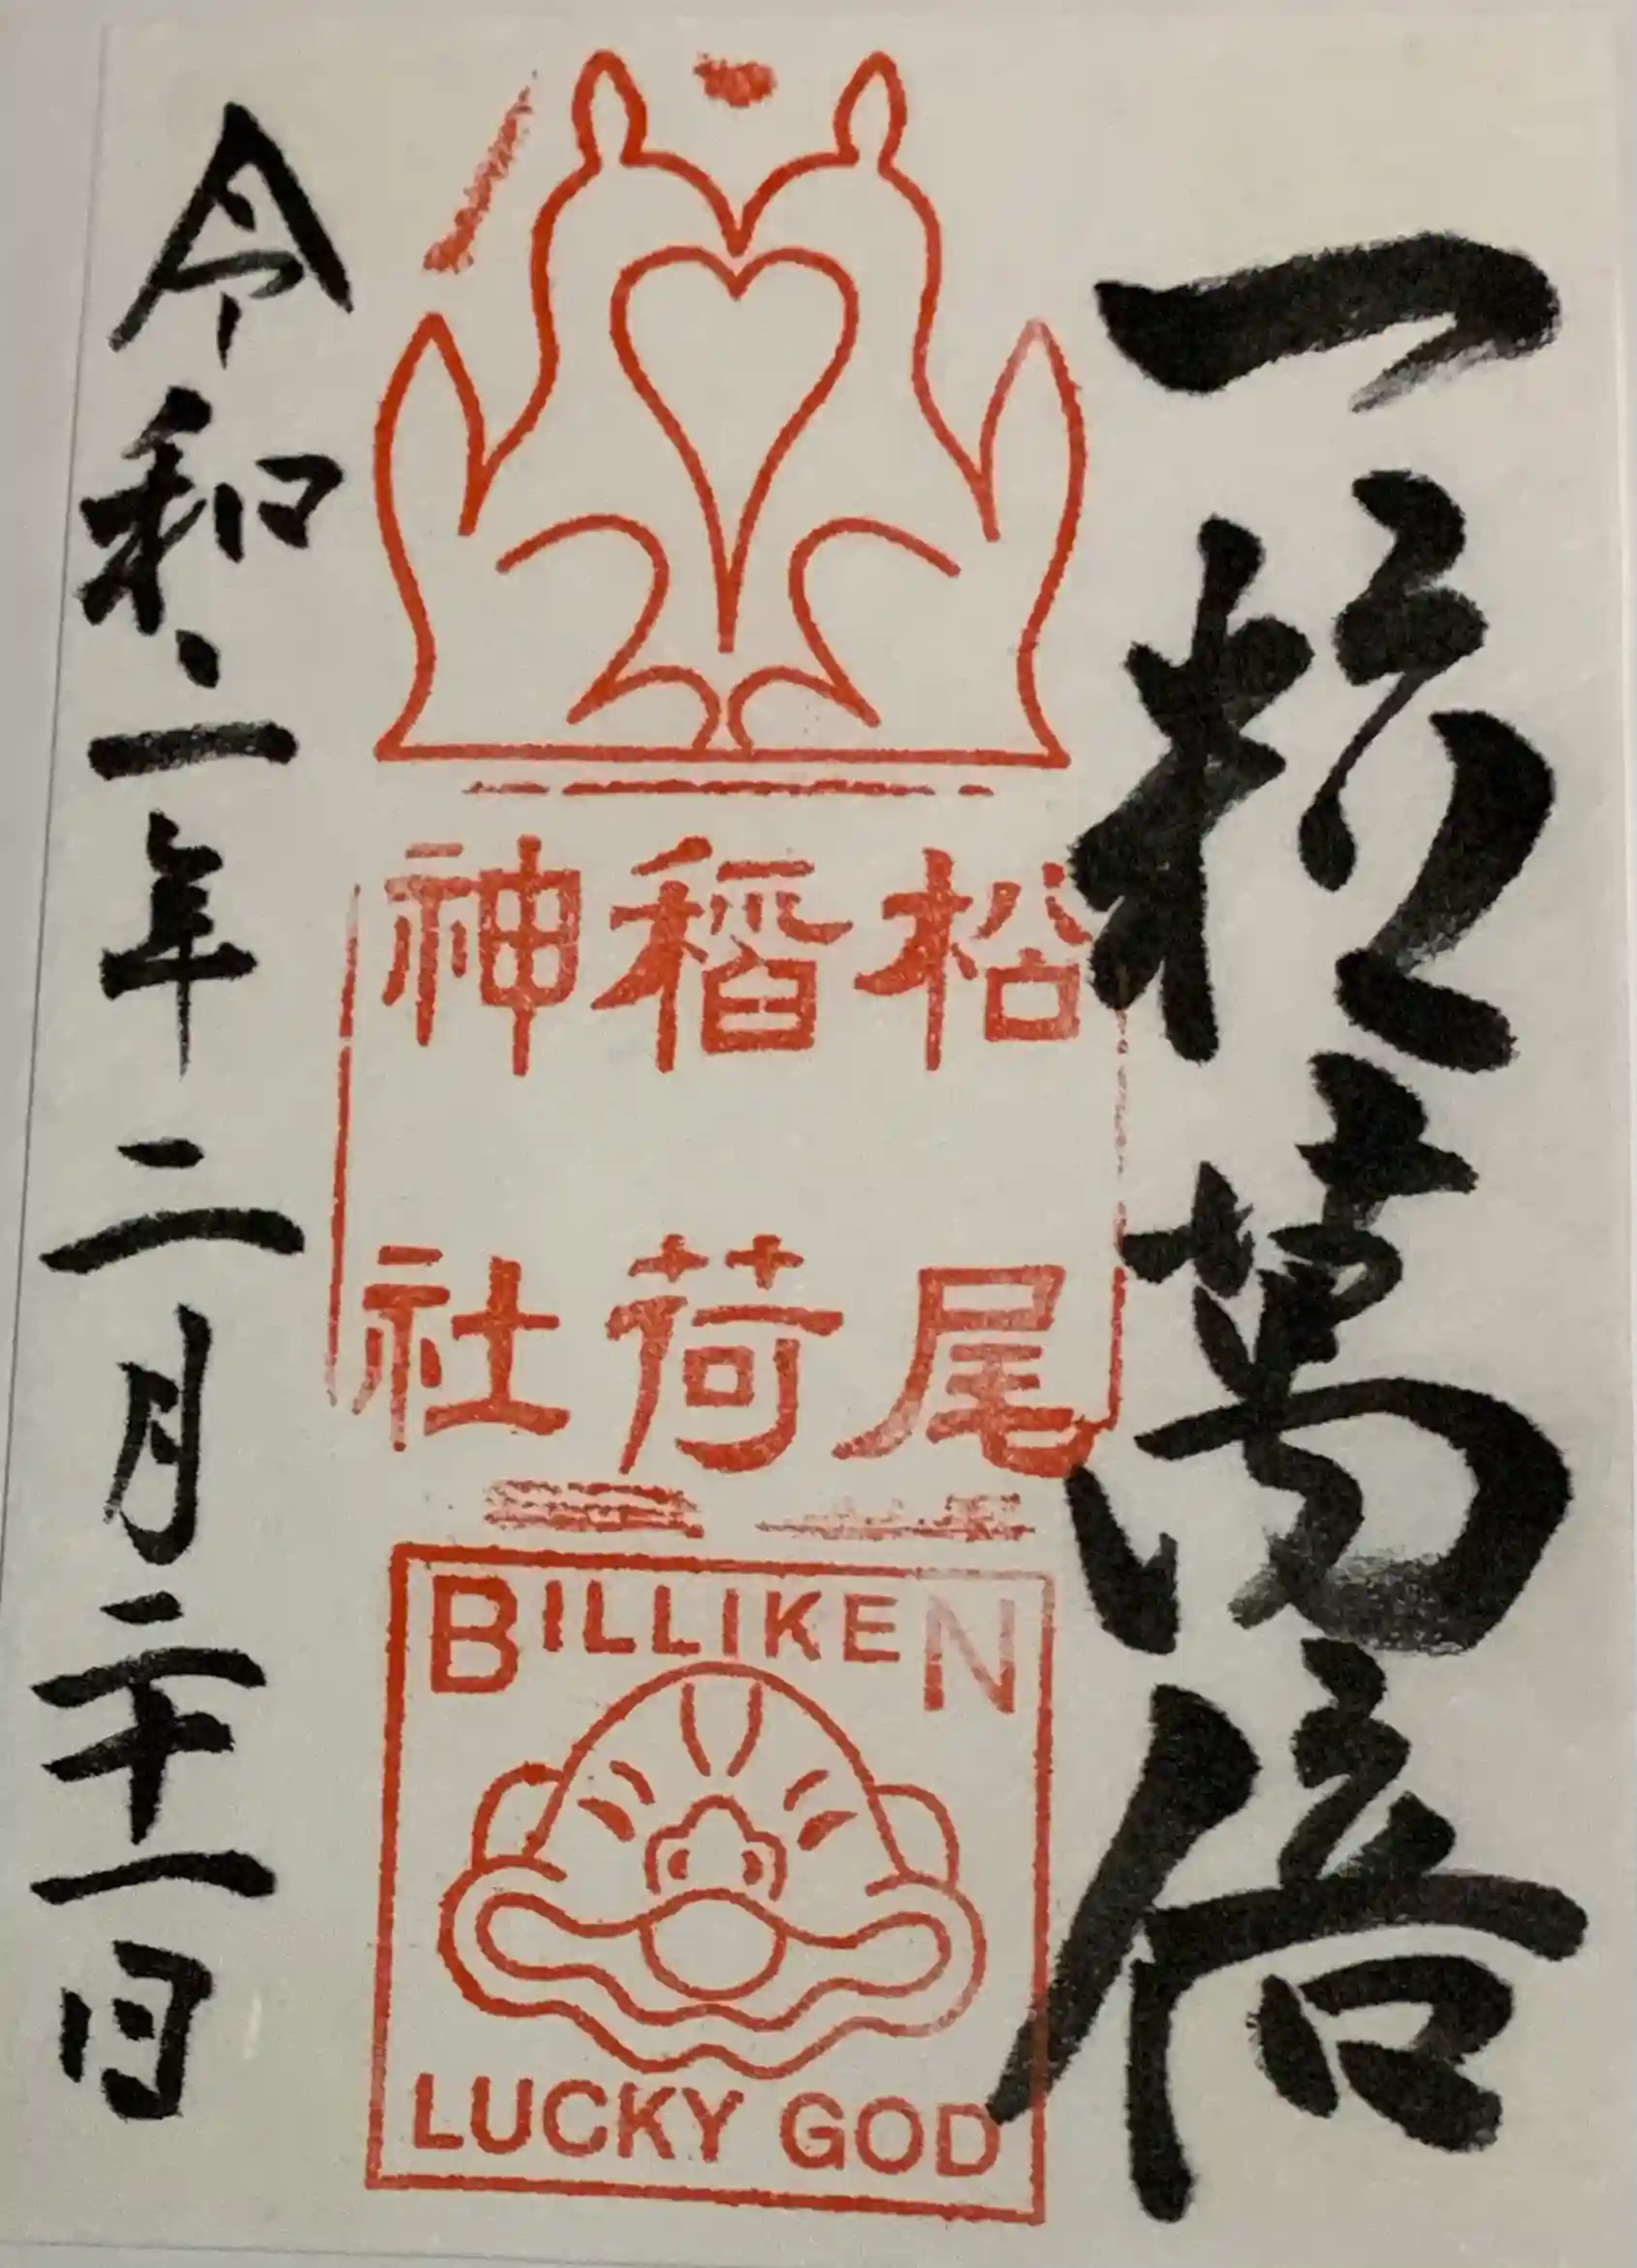 一粒萬倍
松尾
稲荷
神社
BILLIKEN
LUCKY GOD
令和二年二月二十一日